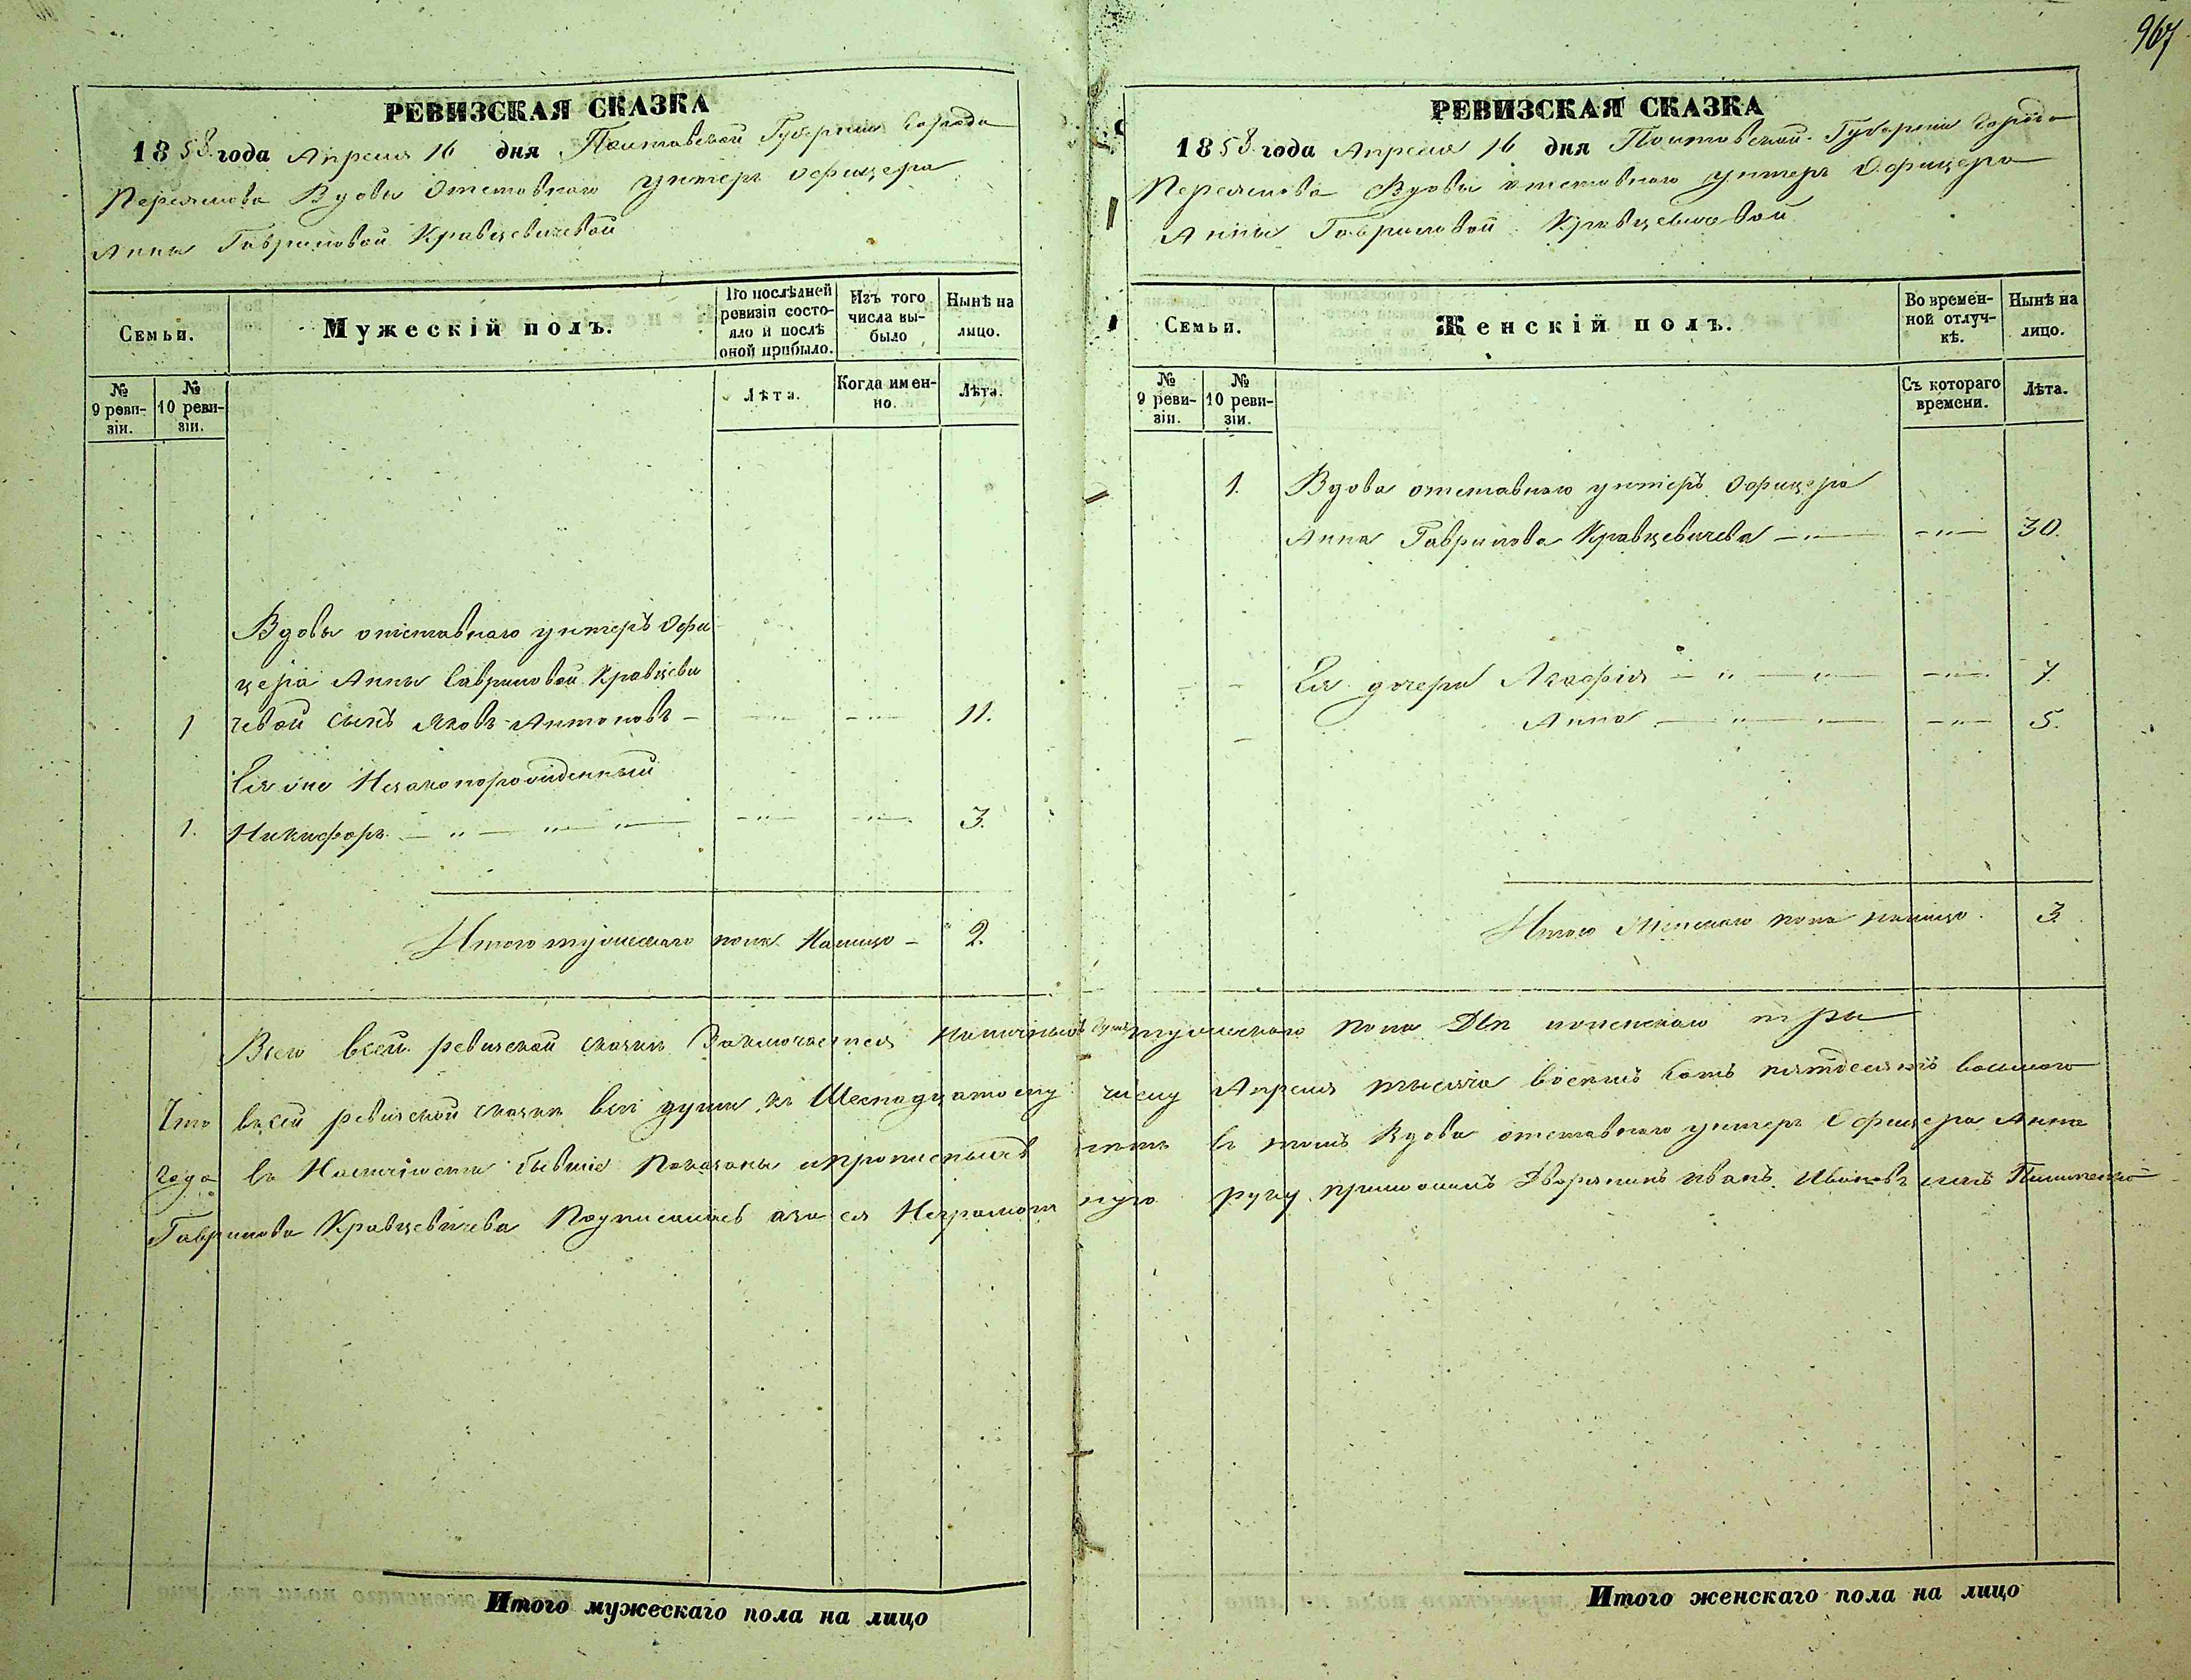 967
РЕВИЗСКАЯ СКАЗКА
1858 года Апреля 16 дня Полтавской Губернии Города
Переяслова Вдовы Отставнаго Унтеръ Офицера
Анны Гавриловой Кравцевичевой
Семьи.
Мужескій полъ.
По послѣдней ревизіи состояло и послѣ оной прибыло.
Изъ того числа выбыло
Нынѣ на лицо.
№ 9 ревизіи.
№ 10 ревизіи.
Лѣта.
Когда именно.
Лѣта.
Вдовы отставнаго унтеръ Офи
цера Анны Гавриловой Кравцеви
1 чевой сынъ Яковъ Антоновъ 11.
Ея же Незаконорожденный
1. Никифоръ 3.
Итого мужескаго пола Налицо 2.
РЕВИЗСКАЯ СКАЗКА
1858 года Апреля 16 дня Полтавской Губернии Города
Переяслова Вдовы отставнаго унтеръ Офицера
Анны Гавриловой Кравцевичевой
Семьи.
Женскій полъ.
Во временной отлучкѣ.
Нынѣ на лицо.
№ 9 ревизіи.
№ 10 ревизіи.
Съ котораго времени.
Лѣта.
1. Вдова отставнаго унтеръ Офицера
Анна Гаврилова Кравцевичева 30.
Ея дочери Агафія 7.
Анна 5.
Итого Женскаго пола налицо. 3.
Всего всей ревизской сказки Заключается Наличныхъ душъ мужескаго пола Две иженскаго три
Что всей ревизской сказки все души, къ Шестнадцатому числу Апреля тысяча восемь сотъ пятдесятъ восмого
года въ Наличности бывшіе Показаны ипрописныхъ нетъ въ томъ Вдова отставнаго унтеръ Офицера Анна
Гаврилова Кравцевичева Подписалась аза ея Неграмотную руку приложилъ Дворянинъ Иванъ Ивановъ сынъ
Итого мужескаго пола на лицо
Итого женскаго пола на лицо